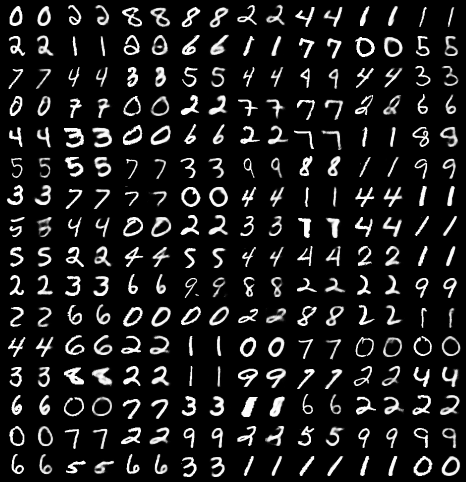 0 0 2 2 8 8 8 8 2 2 4 4 1 1 1 1
2 2 1 1 2 2 6 6 1 1 7 7 0 0 5 5
7 7 4 4 3 3 5 5 4 4 9 9 4 4 3 3
0 0 7 7 0 0 2 2 7 7 7 7 2 2 6 6
4 4 3 3 0 0 6 6 2 2 7 7 1 1 8 8
5 5 5 5 7 7 3 3 9 9 8 8 1 1 9 9
3 3 7 7 7 7 0 0 4 4 1 1 4 4 1 1
5 5 4 4 0 0 2 2 3 3 1 1 4 4 1 1
5 5 2 2 4 4 5 5 4 4 4 4 2 2 1 1
2 2 3 3 6 6 9 9 8 8 2 2 2 2 9 9
2 2 6 6 0 0 0 0 2 2 8 8 2 2 1 1
4 4 6 6 2 2 1 1 0 0 7 7 0 0 0 0
3 3 8 8 2 2 1 1 9 9 7 7 2 2 4 4
6 6 0 0 7 7 3 3 8 6 6 2 2 2 2
0 0 7 7 2 2 9 9 2 2 5 5 9 9 9 9
6 6 5 5 6 6 3 3 1 1 1 1 1 1 0 0